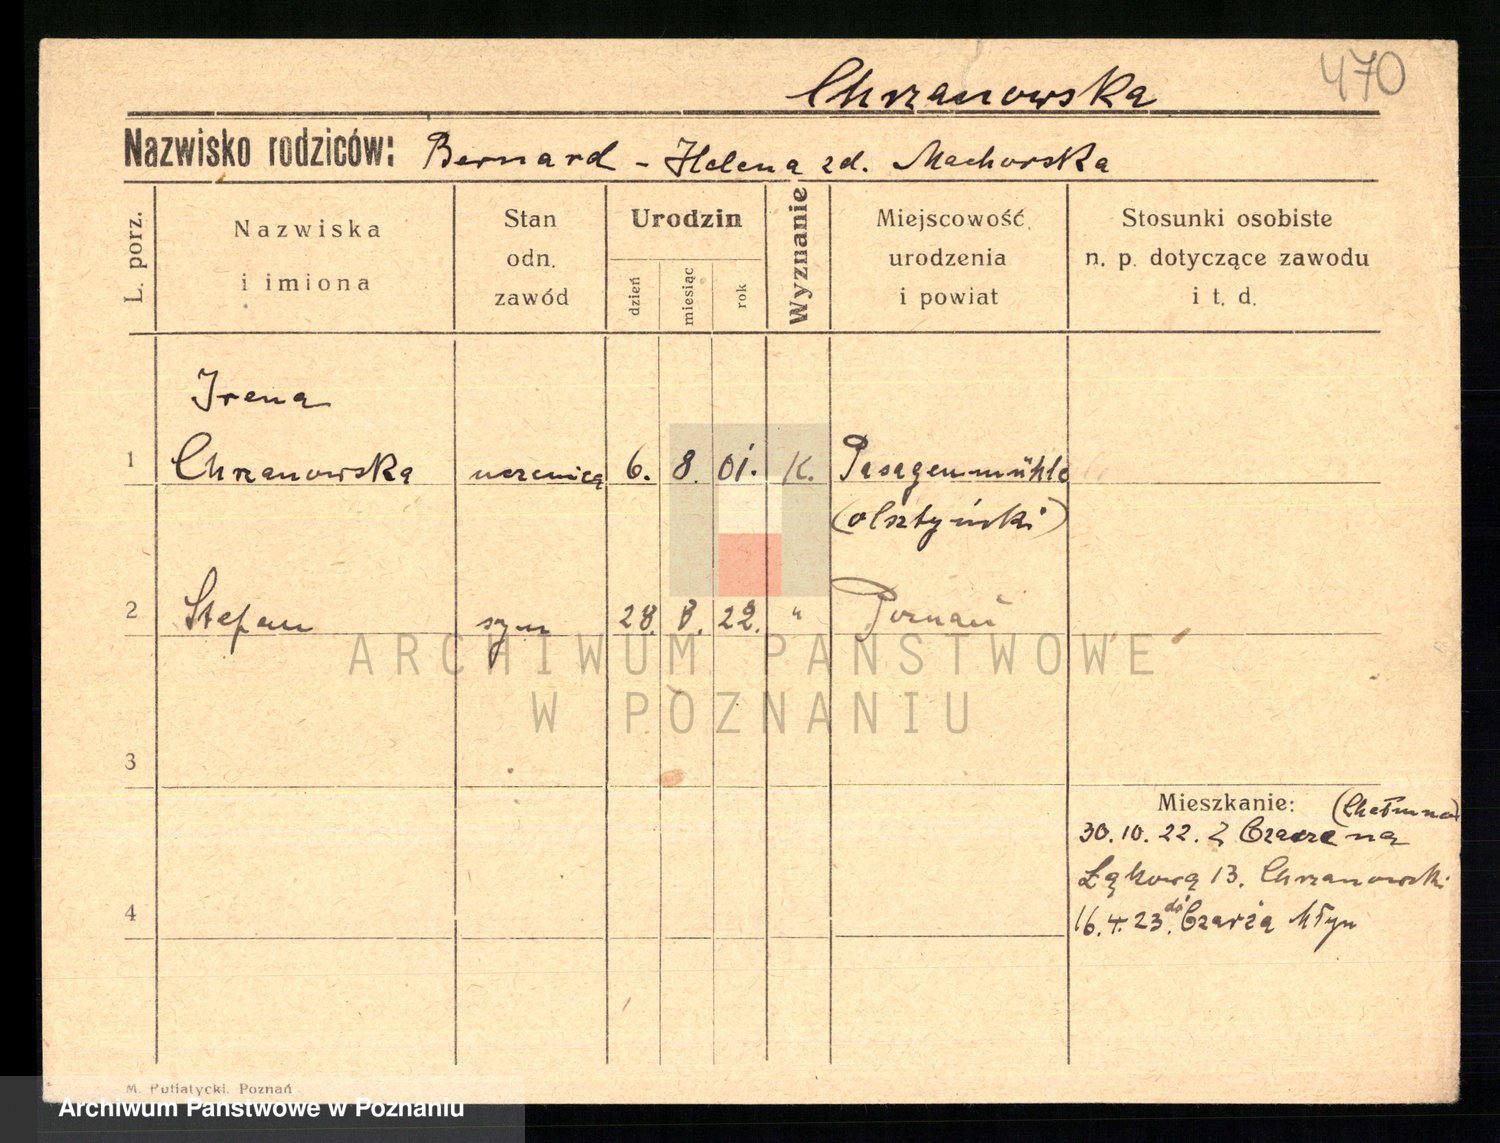 470
Chrzanowska
Nazwisko rodziców: Bernard - Helena zd. Machorska
L. porz.
Nazwiska
i imiona
Stan
odn.
zawód
Urodzin
dzień
miesiąc
rok
Wyznanie
Miejscowość
urodzenia
i powiat
Stosunki osobiste
n. p. dotyczące zawodu
i t. d.
Irena
1 Chrzanowska uczenica 6. 8. 01. K. Pasagenmühle
(olsztyński)
2 Stefan syn 28. 8. 22. " Poznań
ARCHIWUM PAŃSTWOWE
W POZNANIU
3
Mieszkanie: (Chełmna)
30.10.22. Z
Łąkowa 13. Chrzanowski
4
16.4.23. do Czarża Młyn
M. Putiatycki. Poznań
Archiwum Państwowe w Poznaniu